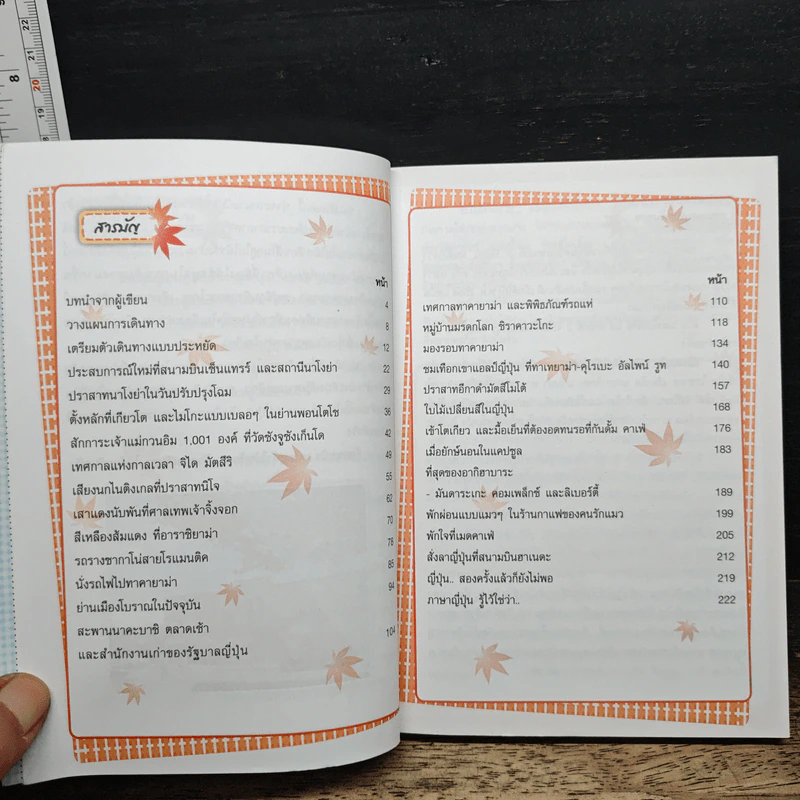 สารบัญ
หน้า
บทนำจากผู้เขียน 4
วางแผนการเดินทาง 8
เตรียมตัวเดินทางแบบประหยัด 12
ประสบการณ์ใหม่ที่สนามบินเซ็นแทรร์ และสถานีนาโงย่า 22
ปราสาทนาโงย่าในวันปรับปรุงโฉม 29
ตั้งหลักที่เกียวโต และไมโกะแบบเบลอๆ ในย่านพอนโตโช 36
สักการะเจ้าแม่กวนอิม 1,001 องค์ ที่วัดซังจูซังเก็นโด 42
เทศกาลแห่งกาลเวลา จิได มัตสึริ 49
เสียงนกไนติงเกลที่ปราสาทนิโจ 55
เสาแดงนับพันที่ศาลเทพเจ้าจิ้งจอก 62
สีเหลืองส้มแดง ที่อาราชิยาม่า 70
รถรางซากาโน่สายโรแมนติค 76
นั่งรถไฟไปทาคายาม่า 85
ย่านเมืองโบราณในปัจจุบัน 94
สะพานนาคะบาชิ ตลาดเช้า
และสำนักงานเก่าของรัฐบาลญี่ปุ่น 104
หน้า
เทศกาลทาคายาม่า และพิพิธภัณฑ์รถแห่ 110
หมู่บ้านมรดกโลก ชิราคาวะโกะ 118
มองรอบทาคายาม่า 134
ชมเทือกเขาแอลป์ญี่ปุ่น ที่ทาเทยาม่า-คุโรเบะ อัลไพน์ รูท 140
ปราสาทอีกาดำมัตสึโมโต้ 157
ใบไม้เปลี่ยนสีในญี่ปุ่น 168
เข้าโตเกียว และมื้อเย็นที่ต้องอดทนรอที่กันดั้ม คาเฟ่ 176
เมื่อยักษ์นอนในแคปซูล 183
ที่สุดของอากิฮาบาระ
- มันดาระเกะ คอมเพล็กซ์ และลิเบอร์ตี้ 189
พักผ่อนแบบแมวๆ ในร้านกาแฟของคนรักแมว 199
พักใจที่เมดคาเฟ่ 205
สั่งลาญี่ปุ่นที่สนามบินฮาเนดะ 212
ญี่ปุ่น.. สองครั้งแล้วก็ยังไม่พอ 219
ภาษาญี่ปุ่น รู้ไว้ใช่ว่า.. 222
8
20
19
21
22